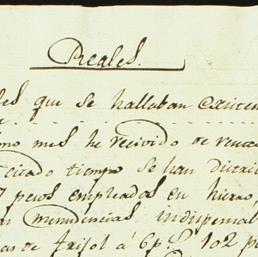 Reales.
les que se hallaban existen
mo mes he recivido de venta
citado tiempo se han distri
7 pesos empleados en hierro,
as menudencias indispensab
as de frijol á 6 p.s 102 p